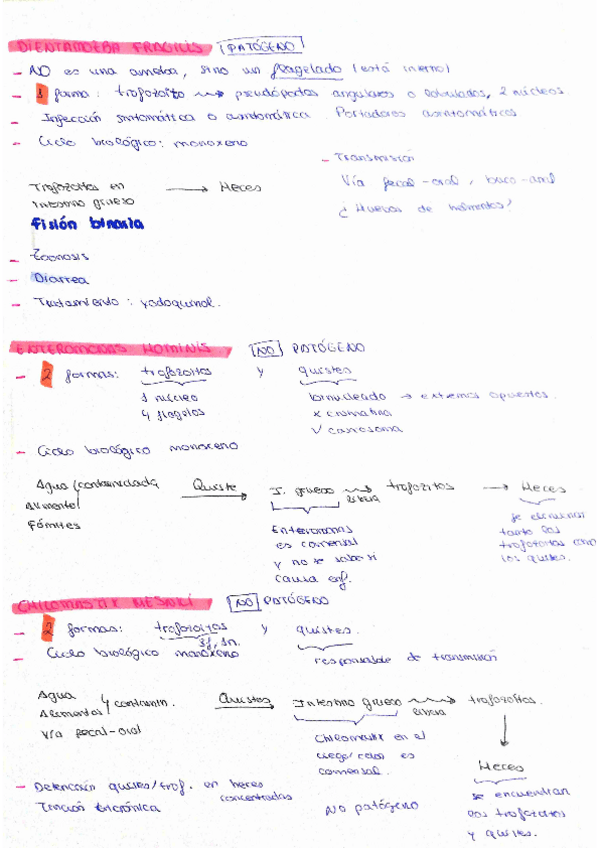 DIENTAMOEBA FRAGILIS PATÓGENO
- NO es una ameba, sino un flagelado (está interno)
- 1 forma: trofozoito → pseudópodos angulares o lobulados, 2 núcleos
- Infección sintomática o asintomática. Portadores asintomáticos
- Ciclo biológico: monoxeno
- Transmisión
Vía fecal-oral, buco-anal
¿Huevos de helmintos?
Trofozoitos en → Heces
intestino grueso
Fisión binaria
- Zoonosis
- Diarrea
- Tratamiento: yodoquinol.
ENTEROMONAS HOMINIS NO PATÓGENO
- 2 formas: trofozoitos y quistes
1 núcleo
4 flagelos
binucleado → extremos opuestos.
x cromatina
√ cariosoma
- Ciclo biológico monoxeno
Agua (contaminada) Quiste → I. grueso → libera trofozitos → Heces
Alimentos
Fómites
Enteromonas
es comensal
y no se sabe si
causa enf.
se eliminan
tanto los
trofozoitos como
los quistes.
CHILOMASTIX MESNILI NO PATÓGENO
- 2 formas: trofozoitos y quistes.
3f, 1n.
responsable de transmisión
- Ciclo biológico monoxeno
Agua
Alimentos y contamin. Quistes → Intestino grueso → libera trofozoitos.
Vía fecal-oral
Chilomastix en el
ciego/colon es
comensal.
Heces
se encuentran
los trofozoitos
y quistes.
- Detección quistes/trof. en heces
concentradas
Tinción tricrómica
No patógeno